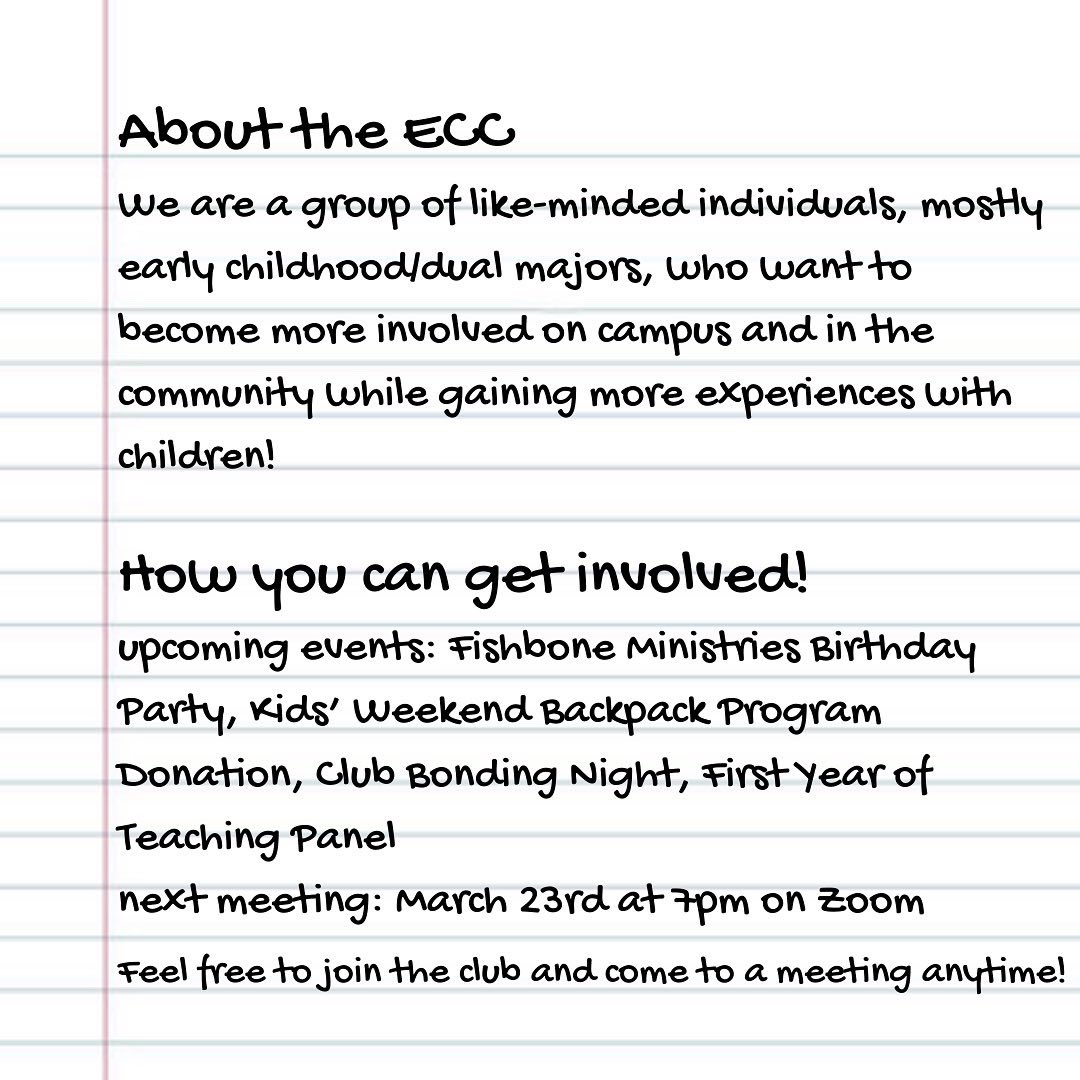 About the ECC
We are a group of like-minded individuals, mostly
early childhood/dual majors, who want to
become more involved on campus and in the
community while gaining more experiences with
children!
How you can get involved!
upcoming events: Fishbone Ministries Birthday
Party, Kids' Weekend Backpack Program
Donation, Club Bonding Night, First Year of
Teaching Panel
next meeting: March 23rd at 7pm on Zoom
Feel free to join the club and come to a meeting anytime!